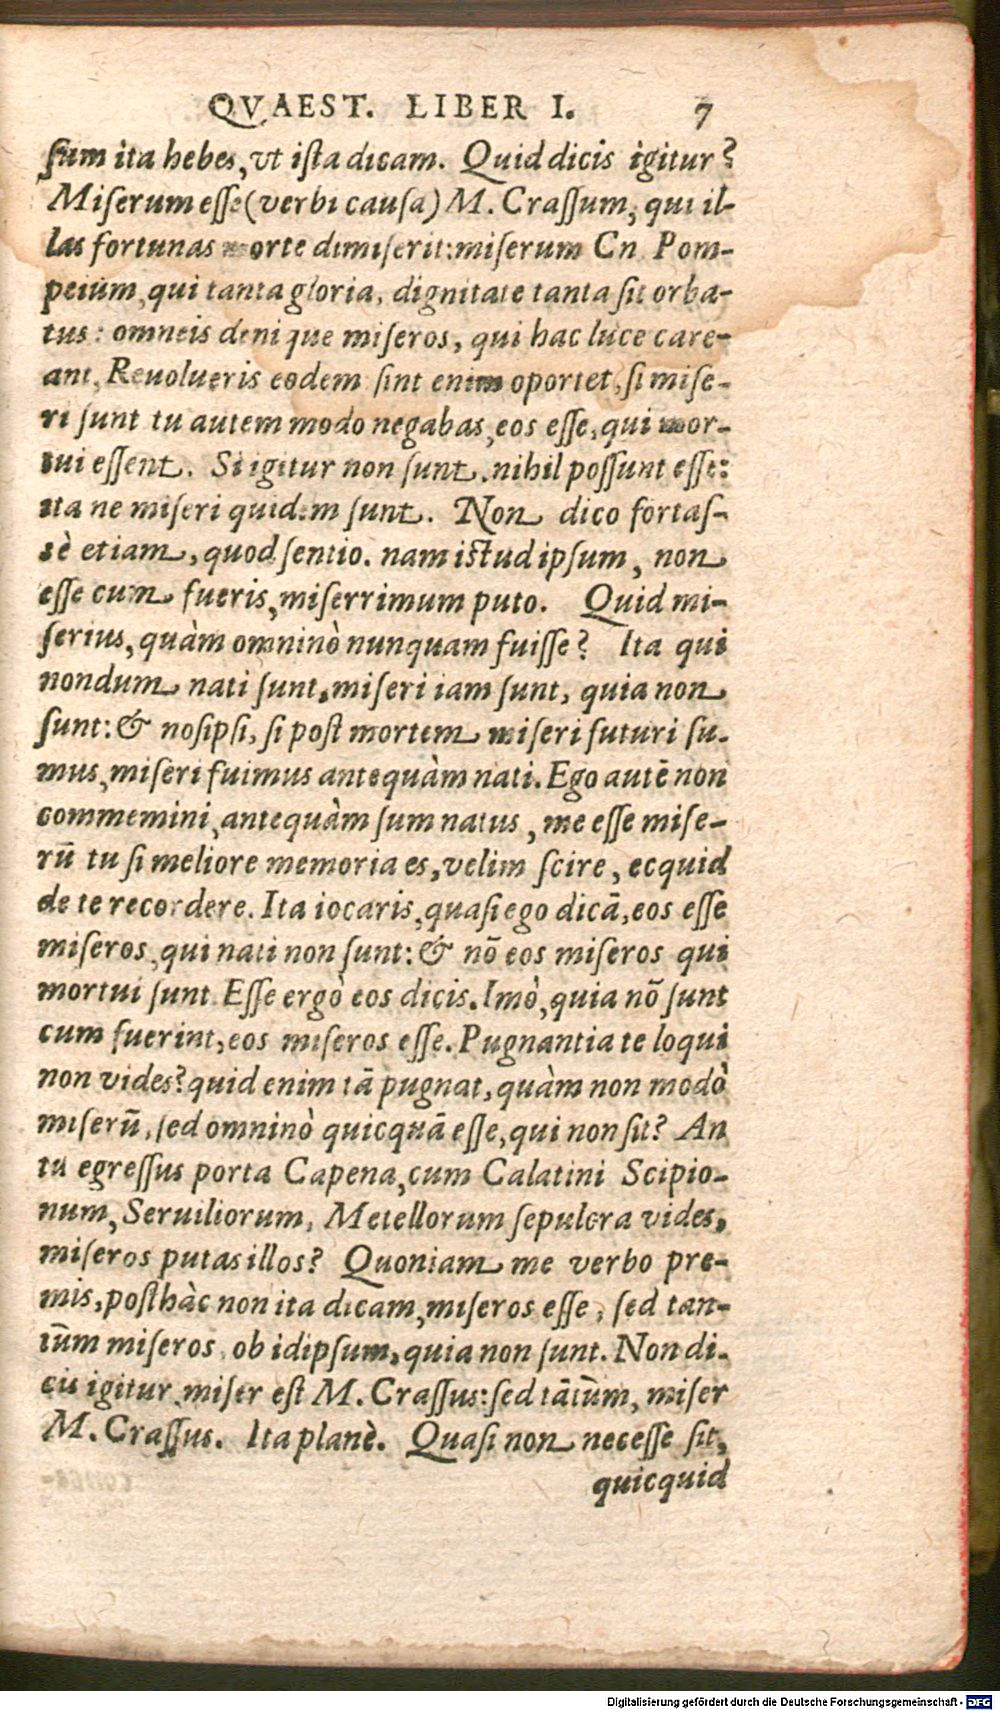 QVAEST. LIBER I. 7
sum ita hebes, vt ista dicam. Quid dicis igitur?
Miserum esse (verbi causa) M. Crassum, qui il-
las fortunas morte dimiserit: miserum Cn Pom-
peium, qui tanta gloria, dignitate tanta sit orba-
tus: omneis denique miseros, qui hac luce care-
ant, Reuolueris eodem sint enim oportet, si mise-
ri sunt tu autem modo negabas, eos esse, qui mor-
tui essent. Si igitur non sunt, nihil possunt esse:
ita ne miseri quidem sunt. Non dico fortas-
sè etiam, quod sentio. nam istud ipsum, non
esse cum fueris, miserrimum puto. Quid mi-
serius, quàm omninò nunquam fuisse? Ita qui
nondum nati sunt, miseri iam sunt, quia non
sunt: & nosipsi, si post mortem miseri futuri su-
mus, miseri fuimus antequàm nati. Ego autē non
commemini, antequàm sum natus, me esse mise-
rū tu si meliore memoria es, velim scire, ecquid
de te recordere. Ita iocaris, quasi ego dicā, eos esse
miseros, qui nati non sunt: & nō eos miseros qui
mortui sunt Esse ergò eos dicis. Imò, quia nō sunt
cum fuerint, eos miseros esse. Pugnantia te loqui
non vides? quid enim tā pugnat, quàm non modò
miserū, sed omninò quicquā esse, qui non sit? An
tu egressus porta Capena, cum Calatini Scipio-
num, Seruiliorum, Metellorum sepulcra vides,
miseros putas illos? Quoniam me verbo pre-
mis, posthàc non ita dicam, miseros esse, sed tan-
tūm miseros, ob idipsum, quia non sunt. Non di-
cis igitur, miser est M. Crassus: sed tātūm, miser
M. Crassus. Ita planè. Quasi non necesse sit,
quicquid
Digitalisierung gefördert durch die Deutsche Forschungsgemeinschaft - DFG